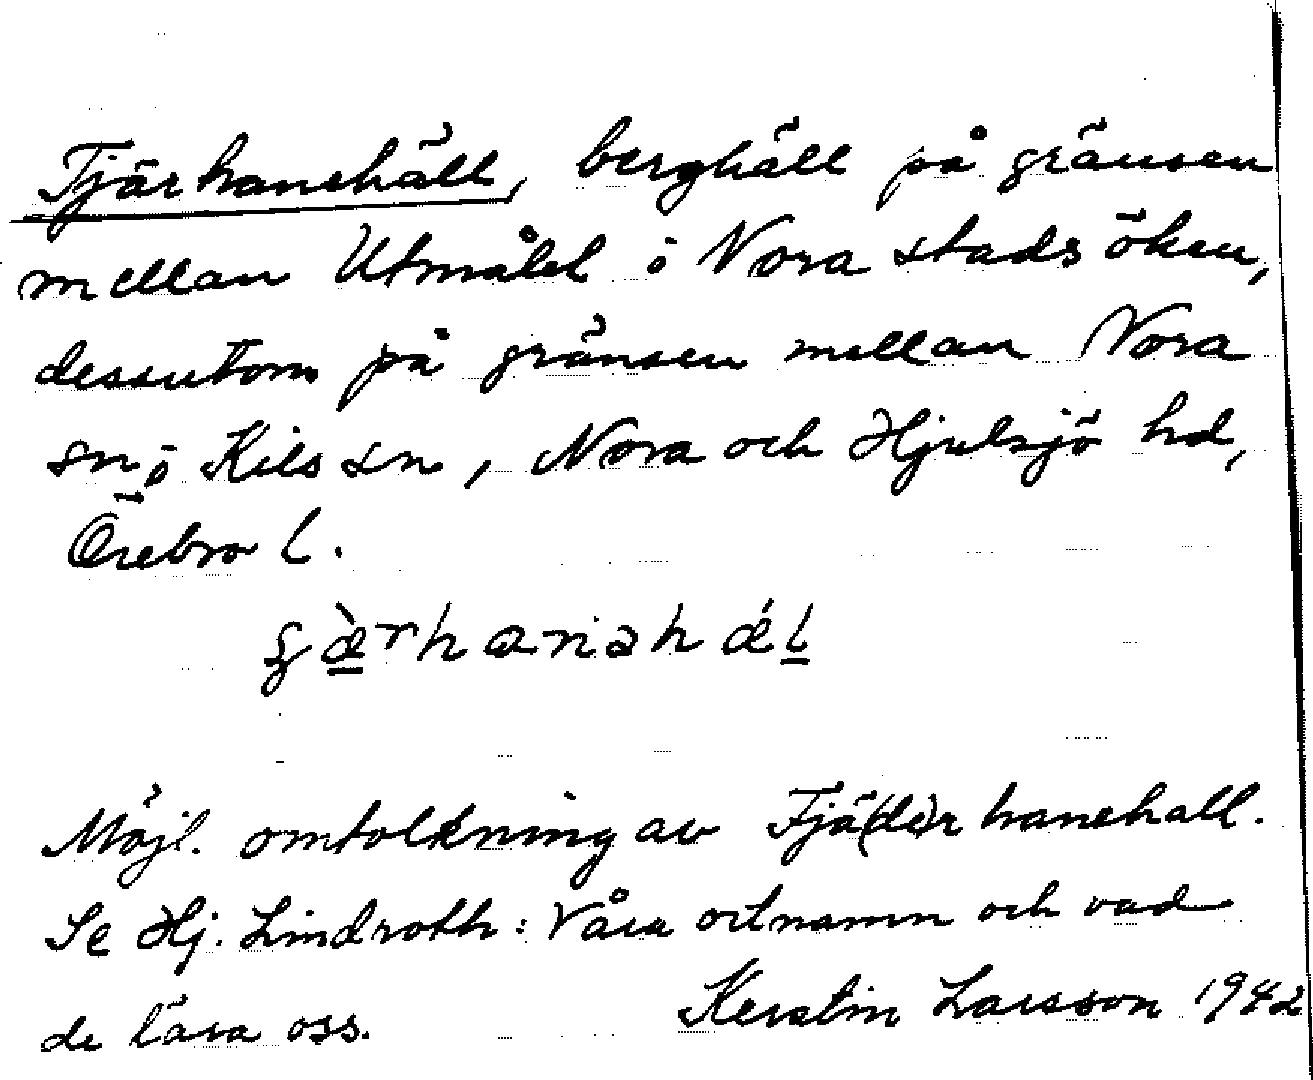 Tjärhanehäll, berghäll på gränsen
mellan Utmålet i Nora stadsöken,
dessutom på gränsen mellan Nora
sn i Kils sn, Nora och Hjulsjö hd,
Örebro l.
Möjl. omtolkning av Tjä(de)r hanehall.
Se Hj. Lindroth: Våra ortnamn och vad
de lära oss. Kerstin Larsson 1942